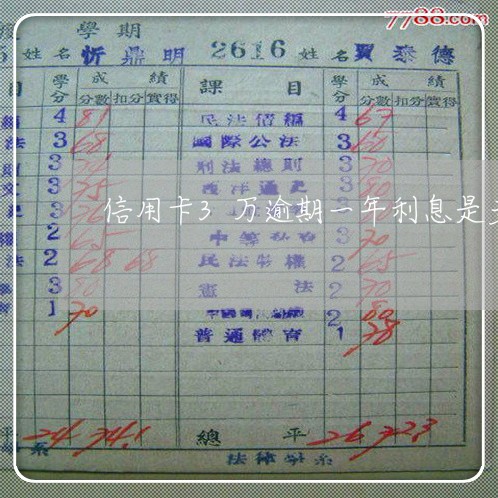 7788.com
學期
姓名 忻鼎明 2616 姓名 賈泰德
目 學分 成績 分數 扣分 實得 課目 學分 成績 分數 扣分 實得
4 81 民法債編 4 67
法 3 68 國際公法 3 60
3 刑法總則 3 70
3 75 西洋通史 3 80
信用卡3 万逾期一年利息是
2 65 3 70
法 2 68 68 民法物權 2 65
3 80 憲法 2 70
1 70 2 80
普通體育 1 78
平 24 74.1 總平 26 72.3
系 法律學系